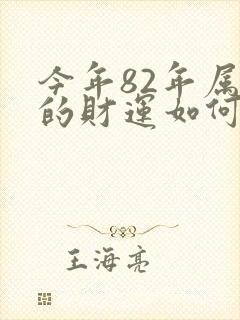 今年82年属
的财运如何
王海亮